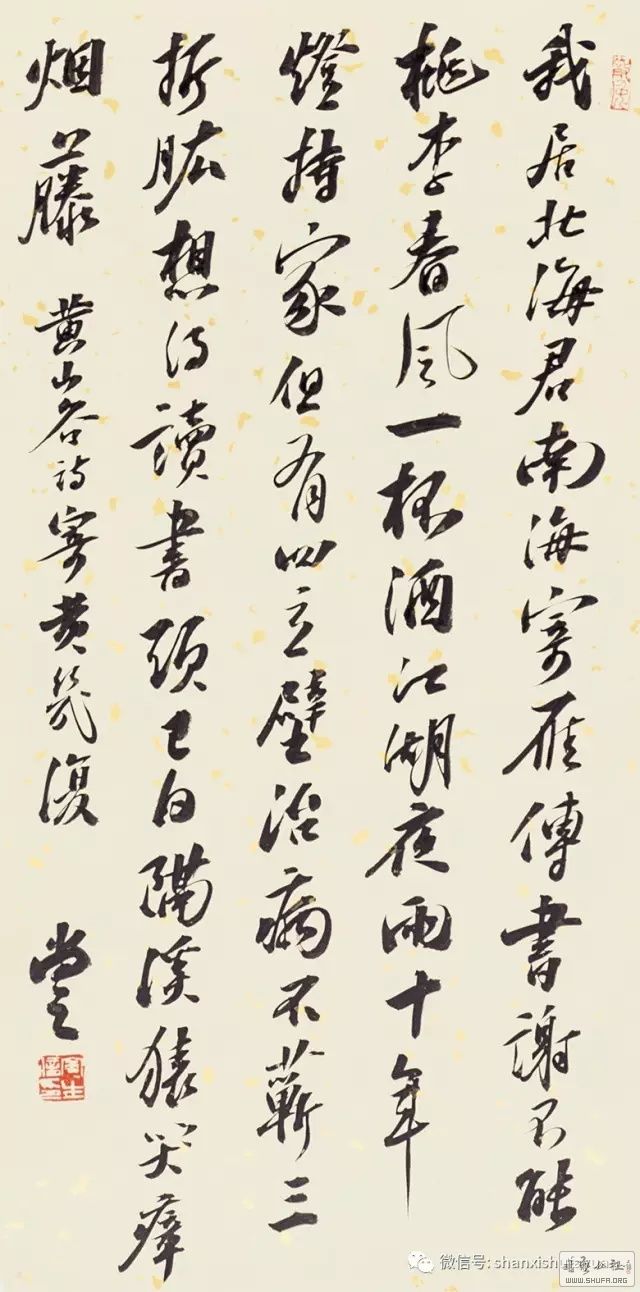 我居北海君南海寄雁傳書謝不能
桃李春風一杯酒江湖夜雨十年
燈持家但有四立壁治病不蘄三
折肱想得讀書頭已白隔溪猿哭瘴
烟藤 黄山谷詩寄黄幾復
微信号: shanxishufayuan
WWW.SHUFA.ORG